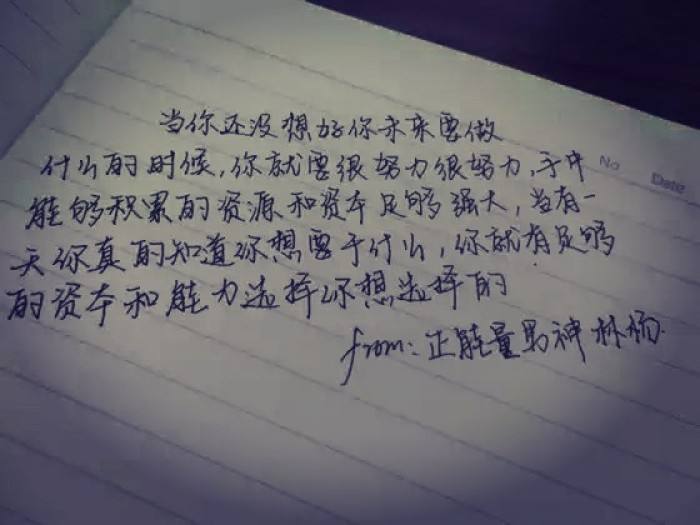 当你还没想好你未来要做
什么的时候，你就要很努力很努力，手中
能够积累的资源和资本足够强大，当有一
天你真的知道你想要干什么，你就有足够
的资本和能力选择你想选择的
from：正能量男神林杨
No
Date